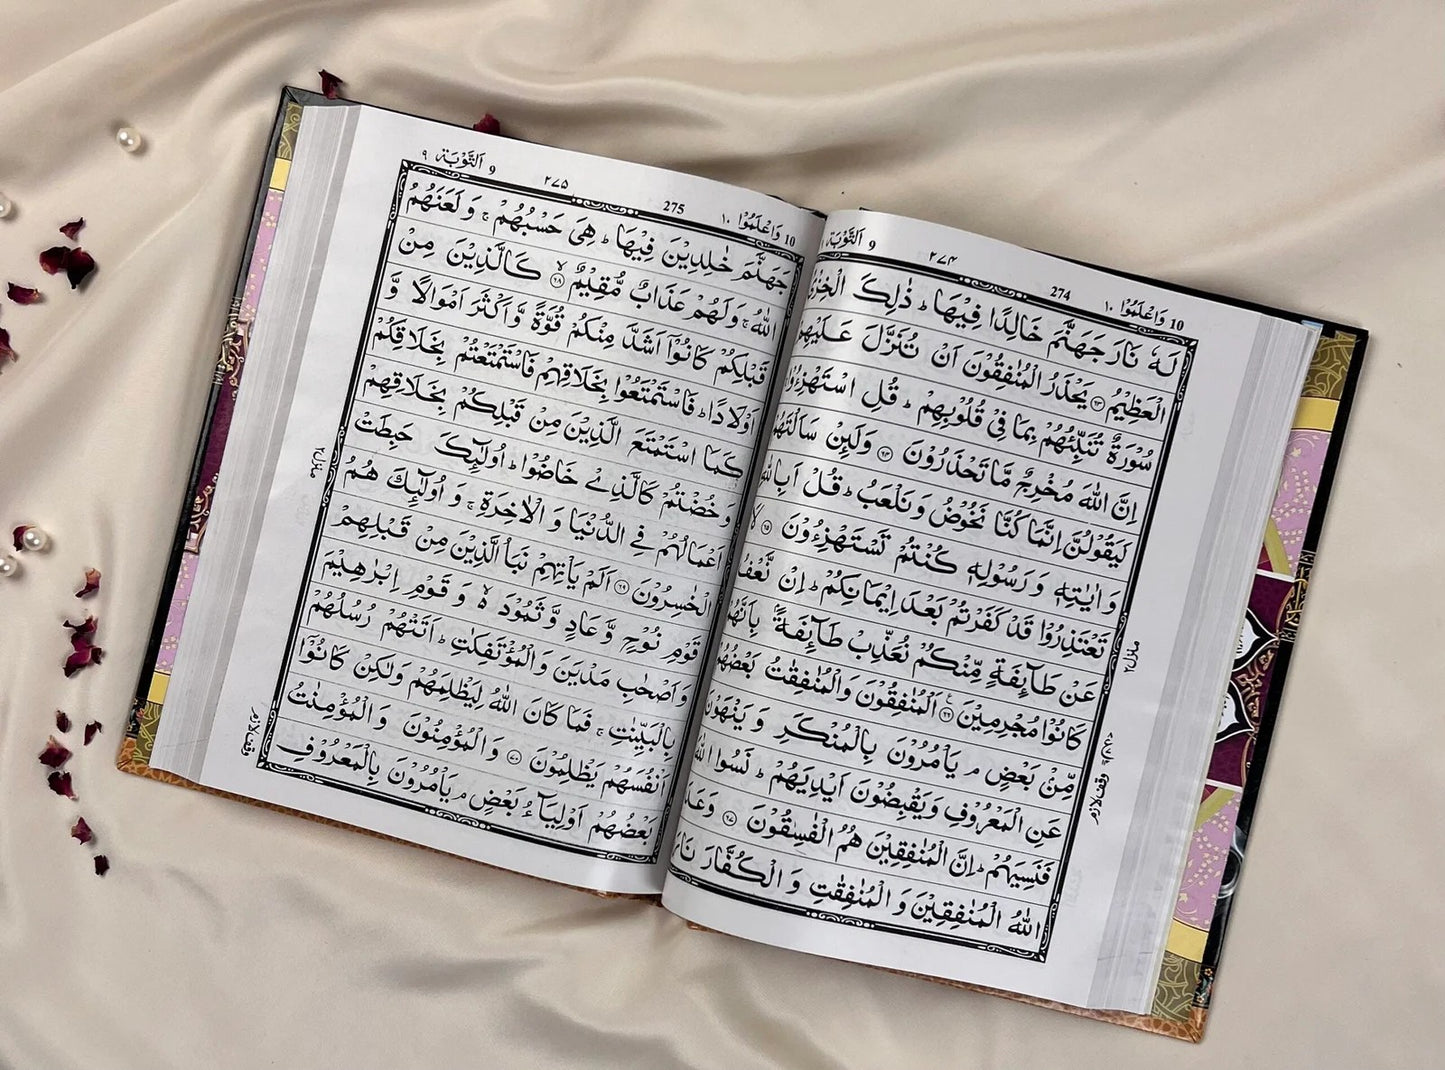 10 وَاعْلَمُوْۤا ١٠ 274 ٢٧٤ 9 اَلتَّوْبَة
لَهٗ نَارَ جَهَنَّمَ خَالِدًا فِيْهَا ؕ ذٰلِكَ الْخِزْیُ
الْعَظِيْمُ ۶۳ يَحْذَرُ الْمُنٰفِقُوْنَ اَنْ تُنَزَّلَ عَلَيْهِمْ
سُوْرَةٌ تُنَبِّئُهُمْ بِمَا فِیْ قُلُوْبِهِمْ ؕ قُلِ اسْتَهْزِءُوْا
اِنَّ اللّٰهَ مُخْرِجٌ مَّا تَحْذَرُوْنَ ۶۴ وَلَئِنْ سَاَلْتَهُمْ
لَيَقُوْلُنَّ اِنَّمَا كُنَّا نَخُوْضُ وَ نَلْعَبُ ؕ قُلْ اَبِاللّٰهِ
وَ اٰيٰتِهٖ وَ رَسُوْلِهٖ كُنْتُمْ تَسْتَهْزِءُوْنَ ۶۵ لَا
تَعْتَذِرُوْا قَدْ كَفَرْتُمْ بَعْدَ اِيْمَانِكُمْ ؕ اِنْ نَّعْفُ
عَنْ طَآئِفَةٍ مِّنْكُمْ نُعَذِّبْ طَآئِفَةًۢ بِاَنَّهُمْ
كَانُوْا مُجْرِمِيْنَ ۶۶ اَلْمُنٰفِقُوْنَ وَالْمُنٰفِقٰتُ بَعْضُهُمْ
مِّنْۢ بَعْضٍ ۘ يَاْمُرُوْنَ بِالْمُنْكَرِ وَ يَنْهَوْنَ
عَنِ الْمَعْرُوْفِ وَ يَقْبِضُوْنَ اَيْدِيَهُمْ ؕ نَسُوا اللّٰهَ
فَنَسِيَهُمْ ؕ اِنَّ الْمُنٰفِقِيْنَ هُمُ الْفٰسِقُوْنَ ۶۷ وَعَدَ
اللّٰهُ الْمُنٰفِقِيْنَ وَ الْمُنٰفِقٰتِ وَ الْكُفَّارَ نَارَ
منزل٢
وقف لازم
10 وَاعْلَمُوْۤا ١٠ 275 ٢٧٥ 9 اَلتَّوْبَة ٩
جَهَنَّمَ خٰلِدِيْنَ فِيْهَا ؕ هِیَ حَسْبُهُمْ ۚ وَ لَعَنَهُمُ
اللّٰهُ ۚ وَ لَهُمْ عَذَابٌ مُّقِيْمٌ ۶۸ كَالَّذِيْنَ مِنْ
قَبْلِكُمْ كَانُوْۤا اَشَدَّ مِنْكُمْ قُوَّةً وَّ اَكْثَرَ اَمْوَالًا وَّ
اَوْلَادًا ؕ فَاسْتَمْتَعُوْا بِخَلَاقِهِمْ فَاسْتَمْتَعْتُمْ بِخَلَاقِكُمْ
كَمَا اسْتَمْتَعَ الَّذِيْنَ مِنْ قَبْلِكُمْ بِخَلَاقِهِمْ
وَ خُضْتُمْ كَالَّذِیْ خَاضُوْا ؕ اُولٰٓئِكَ حَبِطَتْ
اَعْمَالُهُمْ فِی الدُّنْيَا وَ الْاٰخِرَةِ ۚ وَ اُولٰٓئِكَ هُمُ
الْخٰسِرُوْنَ ۶۹ اَلَمْ يَاْتِهِمْ نَبَاُ الَّذِيْنَ مِنْ قَبْلِهِمْ
قَوْمِ نُوْحٍ وَّ عَادٍ وَّ ثَمُوْدَ ۙ۬ وَ قَوْمِ اِبْرٰهِيْمَ
وَ اَصْحٰبِ مَدْيَنَ وَ الْمُؤْتَفِكٰتِ ؕ اَتَتْهُمْ رُسُلُهُمْ
بِالْبَيِّنٰتِ ۚ فَمَا كَانَ اللّٰهُ لِيَظْلِمَهُمْ وَلٰكِنْ كَانُوْۤا
اَنْفُسَهُمْ يَظْلِمُوْنَ ۷۰ وَ الْمُؤْمِنُوْنَ وَ الْمُؤْمِنٰتُ
بَعْضُهُمْ اَوْلِيَآءُ بَعْضٍ ۘ يَاْمُرُوْنَ بِالْمَعْرُوْفِ
منزل٢
وقف لازم